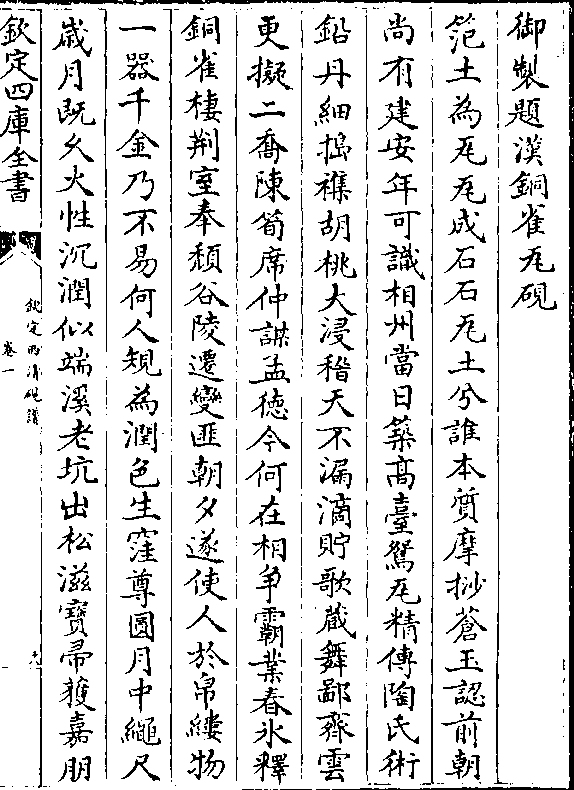 御製題漢銅雀瓦硯
笵土為瓦瓦成石石瓦土兮誰本質摩挱蒼玉認前朝
尚有建安年可識相州當日築髙臺鴛瓦精傳陶氏術
鉛丹細擣襍胡桃大浸稽天不漏滴貯歌蔵舞鄙齊雲
更擬二喬陳筍席仲謀孟徳今何在相争霸業春氷釋
銅雀棲荆室奉頽谷陵遷變匪朝夕遂使人於帛縷物
一器千金乃不易何人規為潤色生窪尊圓月中繩尺
歳月既久火性沉潤似端溪老坑出松滋寶帚獲嘉朋
欽定四庫全書
欽定西清硯譜
卷一